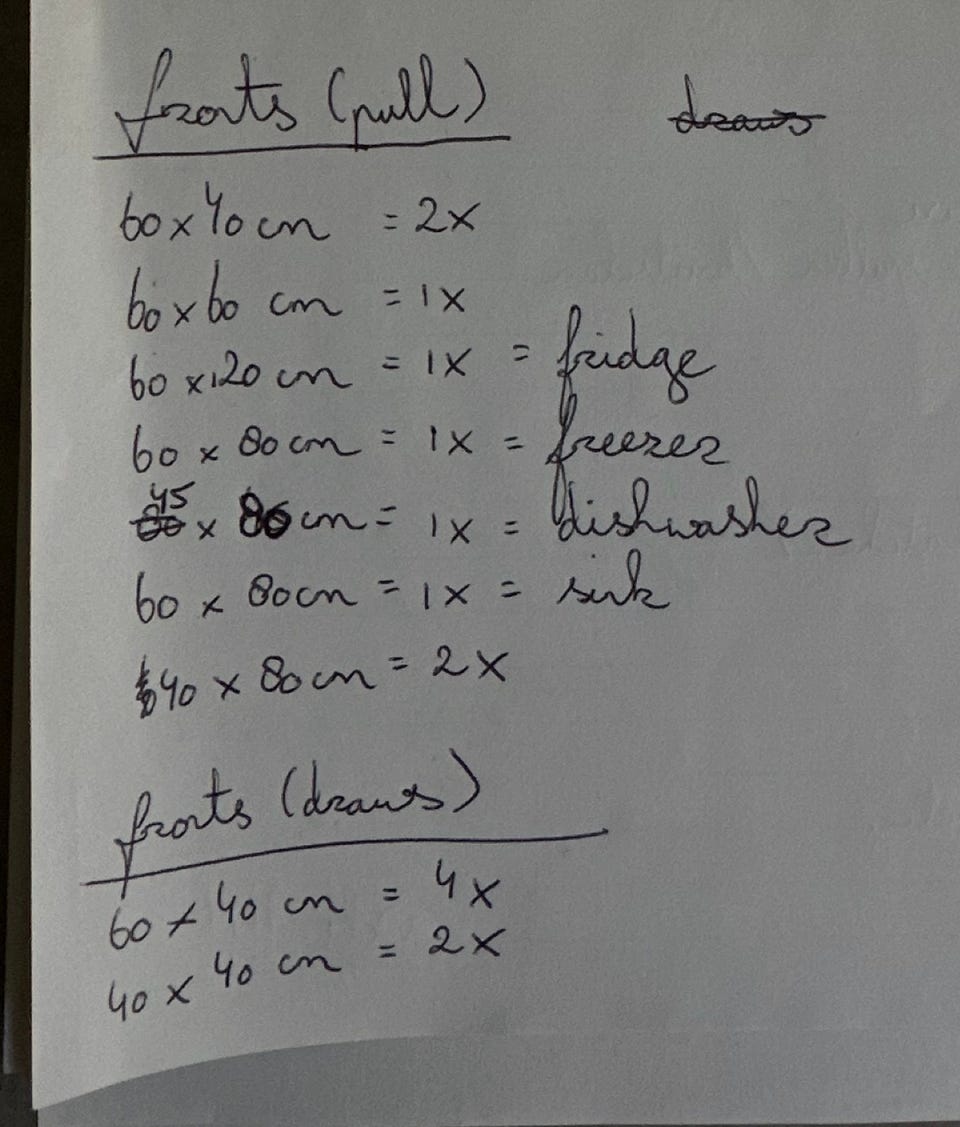 fronts (pull)
draws
60 x 40 cm = 2x
60 x 60 cm = 1x
60 x 120 cm = 1x = fridge
60 x 80 cm = 1x = freezer
45 x 80 cm = 1x = dishwasher
60 x 80 cm = 1x = sink
40 x 80 cm = 2x
fronts (draws)
60 x 40 cm = 4x
40 x 40 cm = 2x